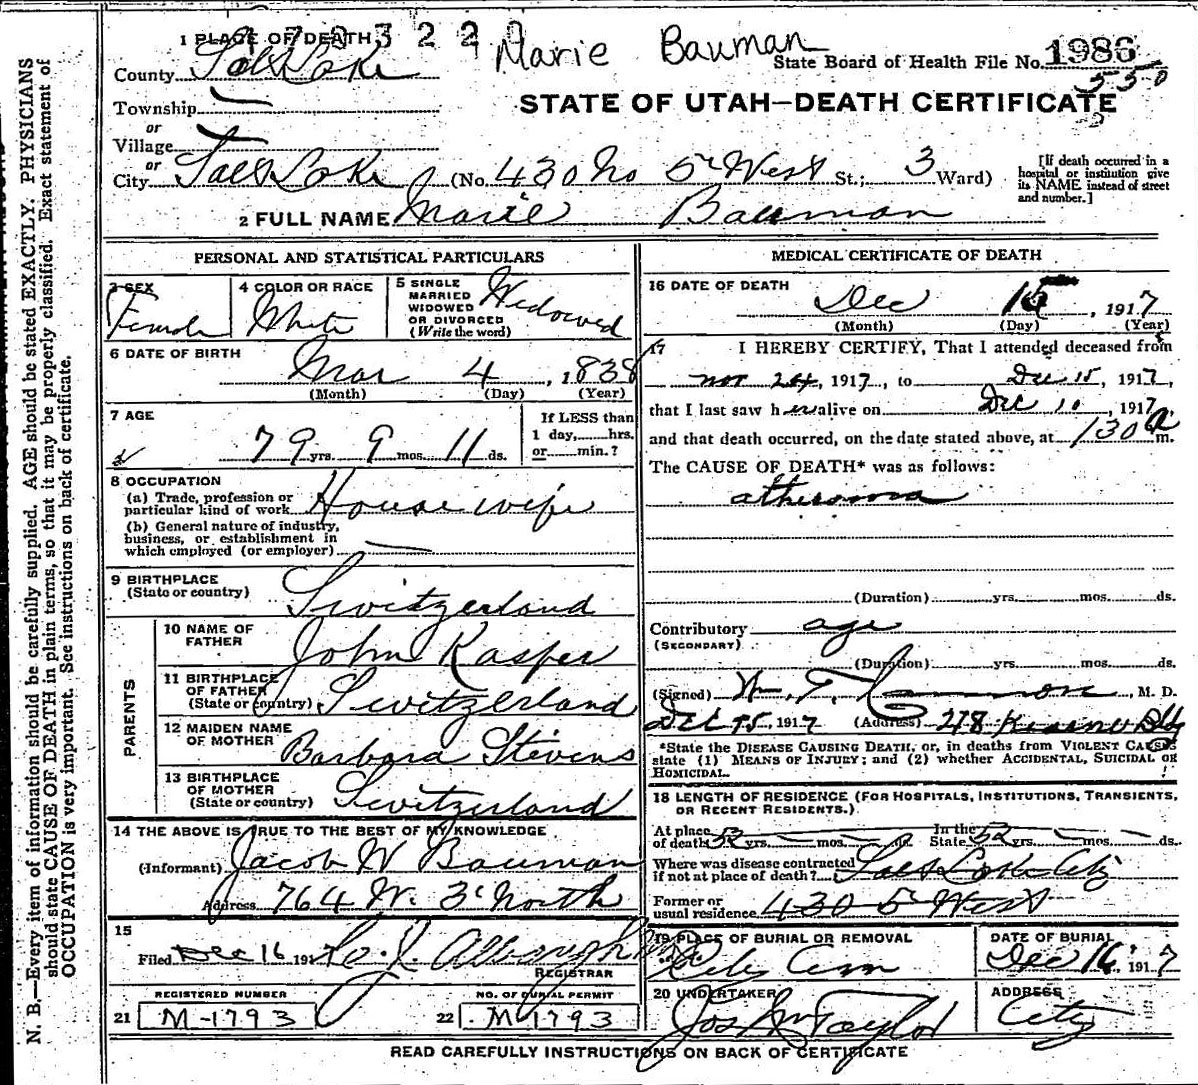 1 PLACE OF DEATH
Marie Bauman
County Salt Lake
State Board of Health File No. 1986
550
Township
STATE OF UTAH—DEATH CERTIFICATE
or
Village
or
City Salt Lake (No. 430 No 5th West St.; 3 Ward)
[If death occurred in a hospital or institution give its NAME instead of street and number.]
2 FULL NAME Marie Bauman
PERSONAL AND STATISTICAL PARTICULARS
3 SEX
Female
4 COLOR OR RACE
White
5 SINGLE
MARRIED
WIDOWED
OR DIVORCED
(Write the word)
Widowed
6 DATE OF BIRTH
Mar 4, 1838
(Month) (Day) (Year)
7 AGE
79 yrs. 9 mos. 11 ds.
If LESS than
1 day,......hrs.
or......min.?
8 OCCUPATION
(a) Trade, profession or
particular kind of work Housewife
(b) General nature of industry,
business, or establishment in
which employed (or employer)
9 BIRTHPLACE
(State or country) Switzerland
PARENTS
10 NAME OF
FATHER John Kasper
11 BIRTHPLACE
OF FATHER
(State or country) Switzerland
12 MAIDEN NAME
OF MOTHER Barbara Stevens
13 BIRTHPLACE
OF MOTHER
(State or country) Switzerland
14 THE ABOVE IS TRUE TO THE BEST OF MY KNOWLEDGE
(Informant) Jacob W Bauman
Address 764 W. 3d North
15
Filed Dec 16 191
REGISTRAR
REGISTERED NUMBER
21 M-1793
NO. OF BURIAL PERMIT
22 M-1793
MEDICAL CERTIFICATE OF DEATH
16 DATE OF DEATH
Dec 15, 1917
(Month) (Day) (Year)
17 I HEREBY CERTIFY, That I attended deceased from
Nov 24, 1917, to Dec 15, 1917,
that I last saw her alive on Dec 10, 1917
and that death occurred, on the date stated above, at 130 a m.
The CAUSE OF DEATH* was as follows:
atheroma
(Duration) yrs. mos. ds.
Contributory age
(SECONDARY)
(Duration) yrs. mos. ds.
(Signed) Wm. T. , M. D.
Dec 15, 1917 (Address) 278
*State the DISEASE CAUSING DEATH, or, in deaths from VIOLENT CAUSES
state (1) MEANS OF INJURY; and (2) whether ACCIDENTAL, SUICIDAL OR
HOMICIDAL.
18 LENGTH OF RESIDENCE (FOR HOSPITALS, INSTITUTIONS, TRANSIENTS,
OR RECENT RESIDENTS.)
At place
of death 52 yrs. mos. ds.
In the
State 52 yrs. mos. ds.
Where was disease contracted
if not at place of death? Salt Lake City
Former or
usual residence 430 5th West
19 PLACE OF BURIAL OR REMOVAL
City Cem
DATE OF BURIAL
Dec 16, 1917
20 UNDERTAKER
Jos Wm Taylor
ADDRESS
City
READ CAREFULLY INSTRUCTIONS ON BACK OF CERTIFICATE
N. B.—Every item of information should be carefully supplied. AGE should be stated EXACTLY. PHYSICIANS
should state CAUSE OF DEATH in plain terms, so that it may be properly classified. Exact statement of
OCCUPATION is very important. See instructions on back of certificate.